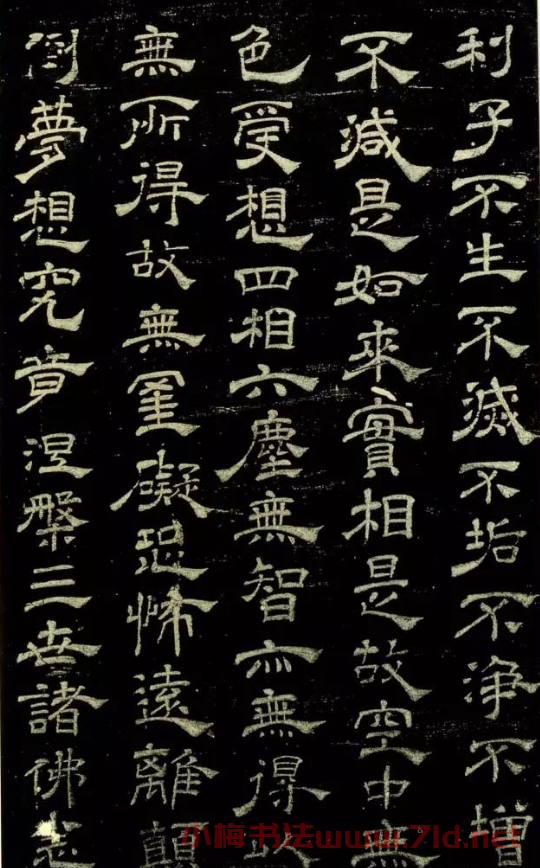 利子不生不滅不垢不淨不增
不減是如來實相是故空中無
色受想四相六塵無智亦無得以
無所得故無罣礙恐怖遠離顛
倒夢想究竟涅槃三世諸佛
小梅书法www.7ld.net